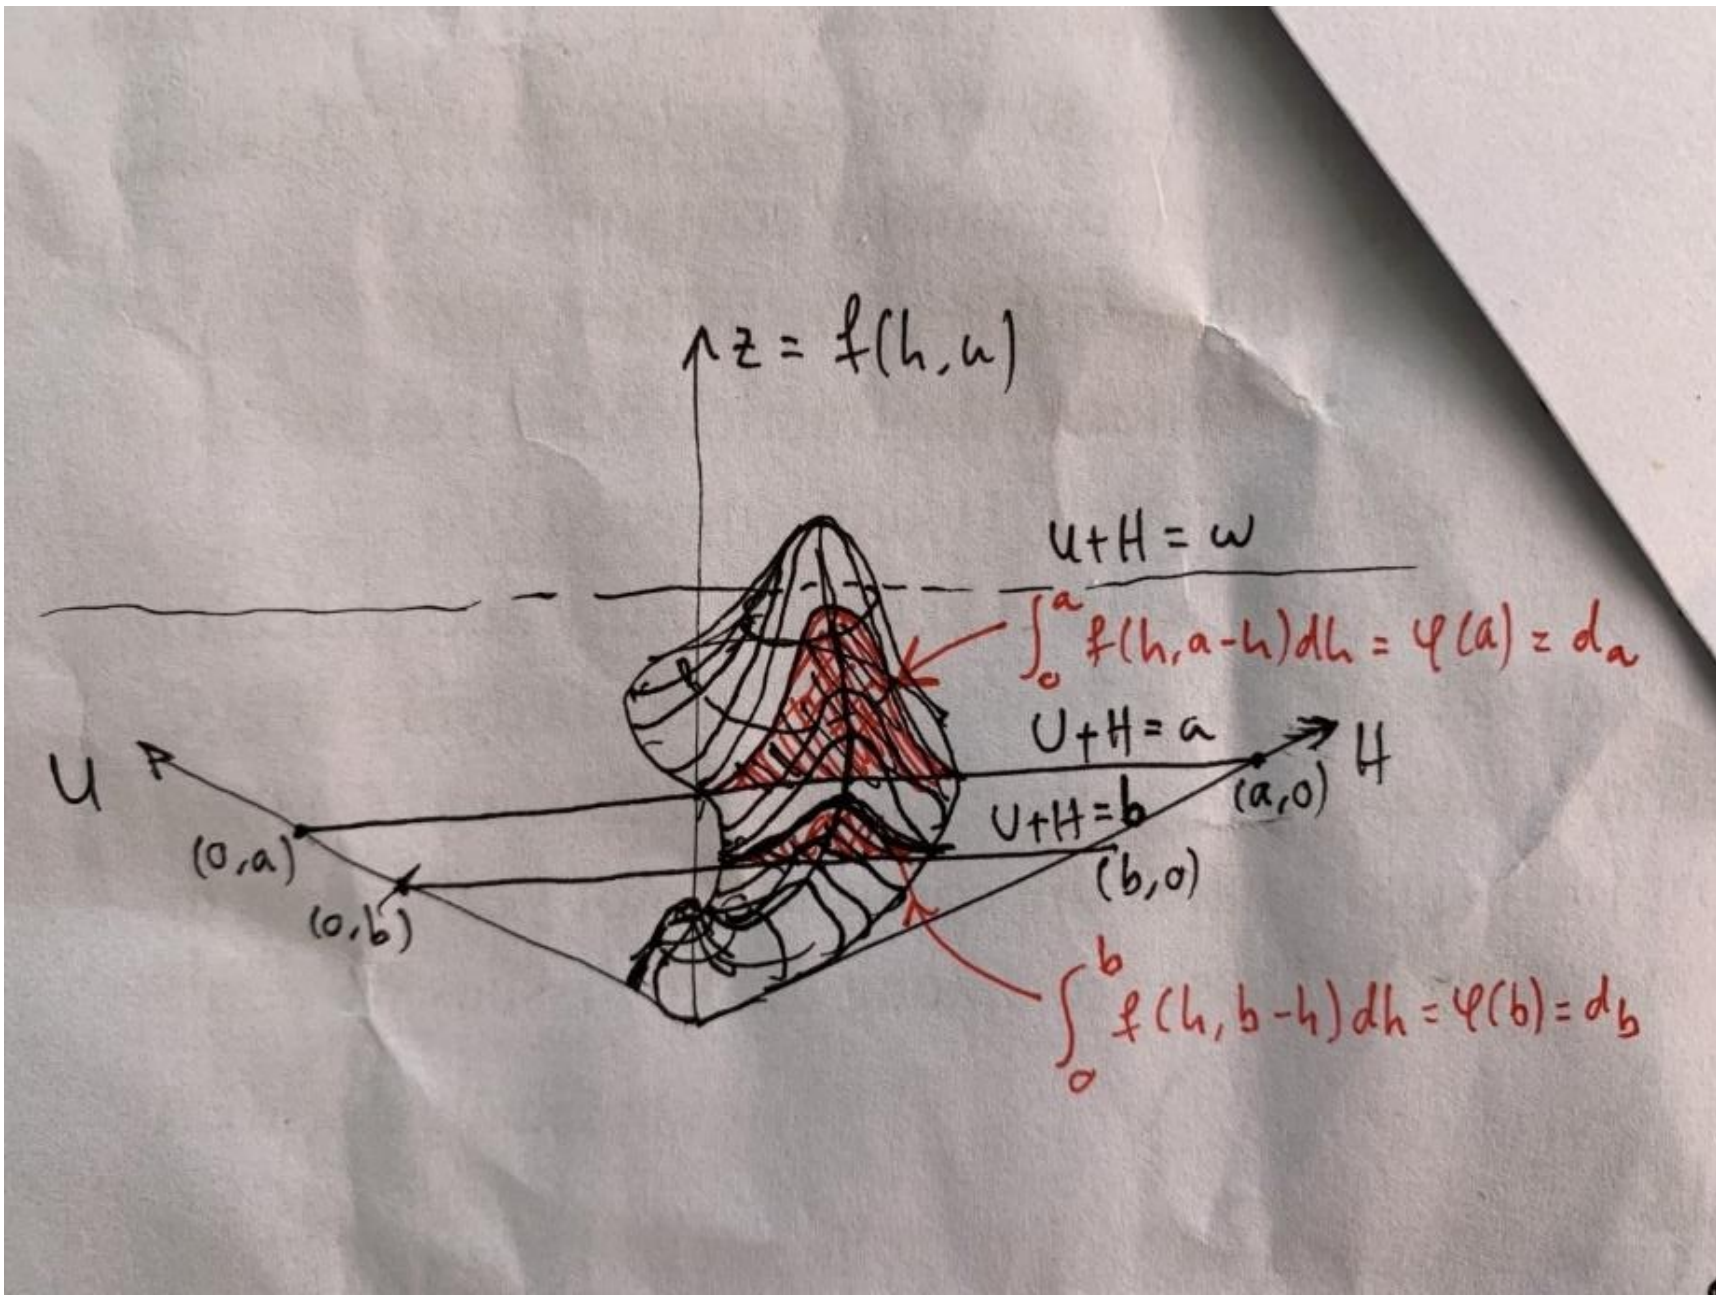 z = f(h,u)
U+H = ω
∫₀ᵃ f(h,a-h)dh = φ(a) = dₐ
U+H = a
U
H
(a,0)
U+H=b
(0,a)
(b,0)
(0,b)
∫₀ᵇ f(h,b-h)dh = φ(b) = d_b